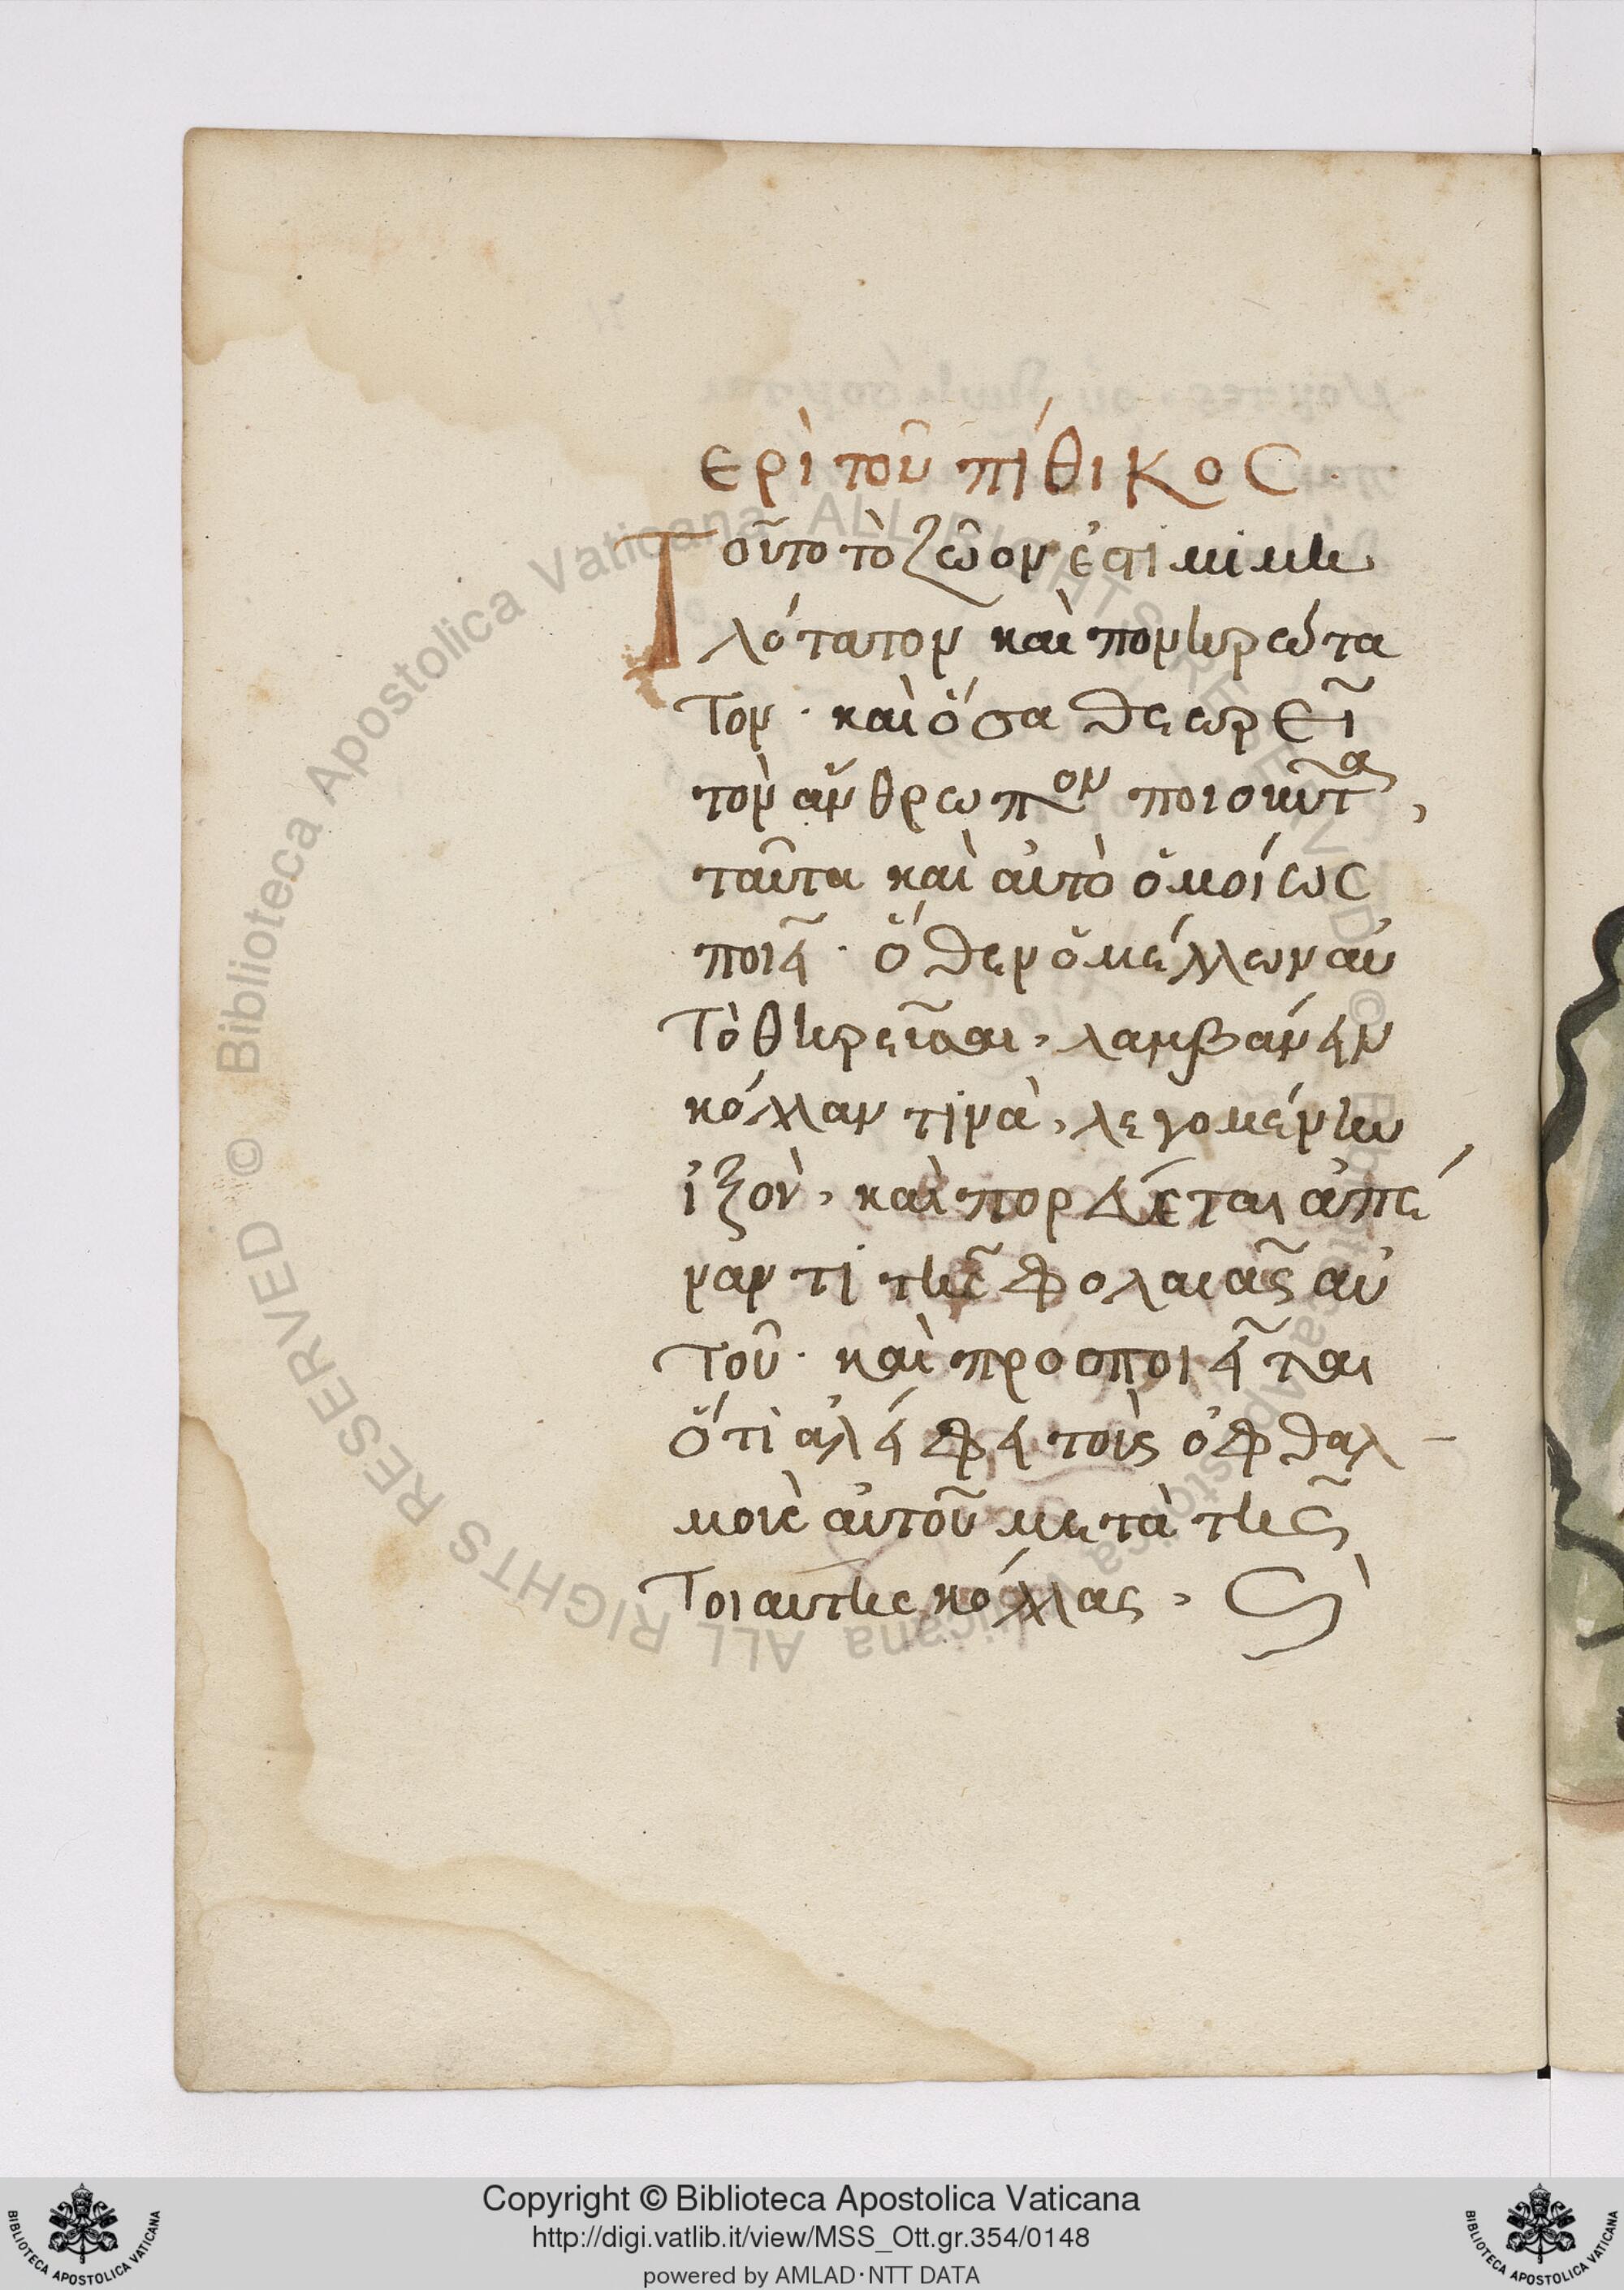 ερὶ τοῦ πίθικος.
Τοῦτο τὸ ζῶον ἐστὶ μιμη
λότατον καὶ πονηρώτα
τον · καὶ ὅσα θεωρεῖ
τὸν ἄνθρωπον ποιοῦντα,
ταῦτα καὶ αὐτὸ ὁμοίως
ποιεῖ · ὅθεν ὁ μέλλων αὐ
τὸ θηρεῖσαι, λαμβάνειν
κόλλαν τινὰ, λεγομένην
ἰξὸν, καὶ πορεύεται ἀπέ
ναντι τῆς φολαιᾶς αὐ
τοῦ · καὶ προσποιεῖται
ὅτι ἀλείφει τοὶς ὀφθαλ
μοὶς αὐτοῦ μετὰ τῆς
τοιαύτης κόλλας,
Copyright © Biblioteca Apostolica Vaticana
http://digi.vatlib.it/view/MSS_Ott.gr.354/0148
powered by AMLAD·NTT DATA
BIBLIOTECA APOSTOLICA VATICANA
BIBLIOTECA APOSTOLICA VATICANA
© Biblioteca Apostolica Vaticana ALL RIGHTS RESERVED © Biblioteca Apostolica Vaticana ALL RIGHTS RESERVED